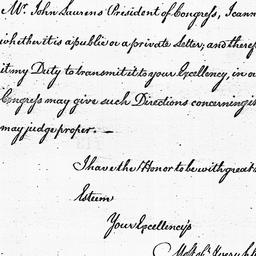 Mr. John Laurens President of Congress, I cann
whether it is a public or a private Letter, and theref
it my Duty to transmit it to your Excellency, in o
Congress may give such Directions concerning i
may judge proper. —
I have the Honor to be with great
Esteem
Your Excellency's
Most